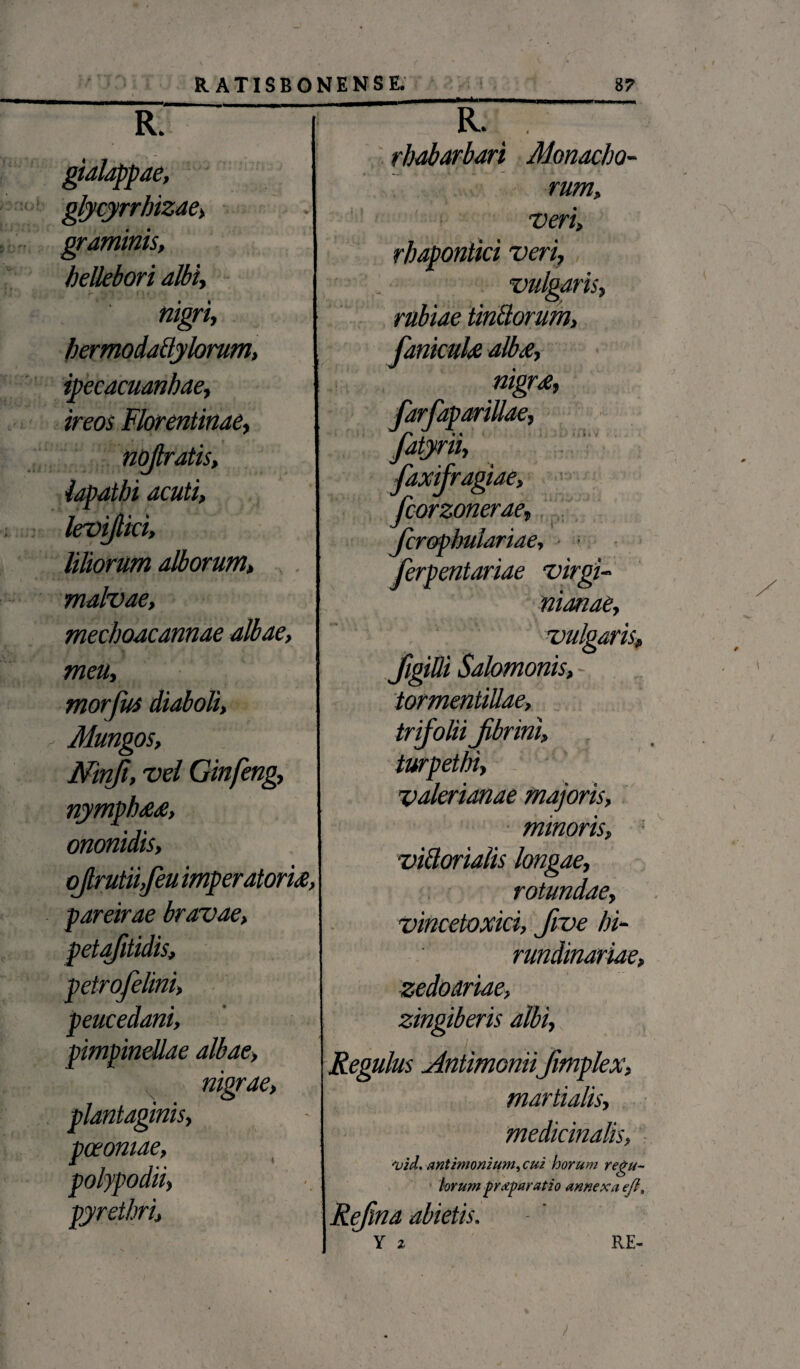 RATISBONENSE. 87
R.
gialappae,
glycyrrhizae,
graminis,
hellebori albi,
nigri,
hermodactylorum,
ipecacuanhae,
ireos Florentinae,
noſtratis,
lapathi acuti,
leviſtici,
liliorum alborum,
malvae,
mechoacannae albae,
meu,
morſus diaboli,
Mungos,
Ninſi, vel Ginſeng,
nymphææ,
ononidis,
oſtrutii,ſeu imperatoriæ,
pareirae bravae,
petaſitidis,
petroſelini,
peucedani,
pimpinellae albae,
nigrae,
plantaginis,
pœoniae,
polypodii,
pyrethri,
R.
rhabarbari Monacho-
rum,
veri,
rhapontici veri,
vulgaris,
rubiae tinctorum,
ſaniculæ albæ,
nigræ,
ſarſaparillae,
ſatyrii,
ſaxifragiae,
ſcorzonerae,
ſcrophulariae,
ſerpentariae virgi-
nianae,
vulgaris,
ſigilli Salomonis,
tormentillae,
trifolii fibrini,
turpethi,
valerianae majoris,
minoris,
victorialis longae,
rotundae,
vincetoxici, ſive hi-
rundinariae,
zedoariae,
zingiberis albi,
Regulus Antimonii ſimplex,
martialis,
medicinalis,
vid. antimonium, cui horum regu-
lorum præparatio annexa eſt,
Reſina abietis.
Y 2 RE-